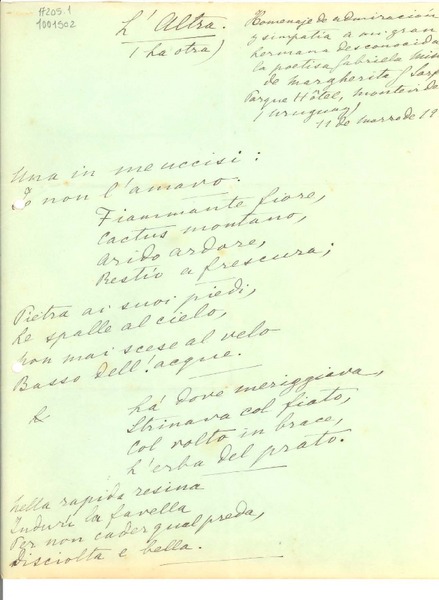 A209.1
1001502
L' Altra.
(La otra)
Homenaje de admiración
y simpatía a su gran
hermana desconocida
la poetisa Gabriela Mis
de Margherita G Sarf
Parque Hôtel, Montevide
(Uruguay)
11 de Marzo de 19
Una in me uccisi:
Io non l'amavo.
Fiammante fiore,
Cactus montano,
Arido ardore,
Restío a frescura;
Pietra ai suoi piedi,
Le spalle al cielo,
Non mai scese al velo
Basso dell'acque.
Là dove meriggiava,
Strinava col fiato,
Col volto in brace,
L'erba del prato.
Nella rapida resina
Indurì la favella
Per non cader qual preda,
Disciolta e bella.